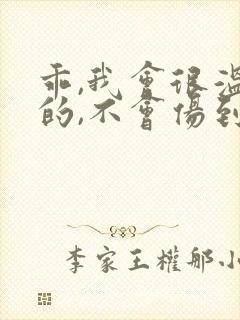 乖,我會很溫
的,不會傷到
李家王權那小